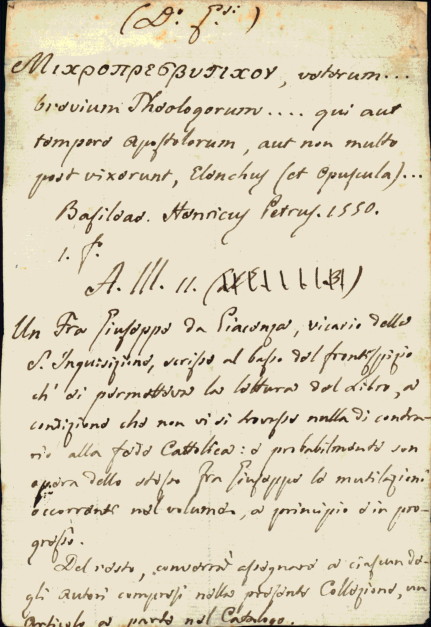 (D.º G.si )
Μικροπρεσβυτικον, veterum...
brevium Theologorum .... qui aut
tempore Apostolorum, aut non multo
post vixerunt, Elenchus (et opuscula)...
Basileae. Henricus Petrus. 1550.
1. f.
A. III. 11. ( )
Un Fra Giuseppe da Giaconza, vicario della
S. Inquisizione, scrisse al basso del frontespizio
ch' ei permetteva la lettura del Libro, a
condizione che non vi si trovasse nulla di contra-
rio alla fede Cattolica: e probabilmente son
opera dello stesso Fra Giuseppe le mutilazioni
occorrenti nel volume, a principio e in pro-
gresso.
Del resto, converrà assegnare a ciascun de-
gli Autori compresi nella presente Collezione, un
articolo a parte nel Catalogo.